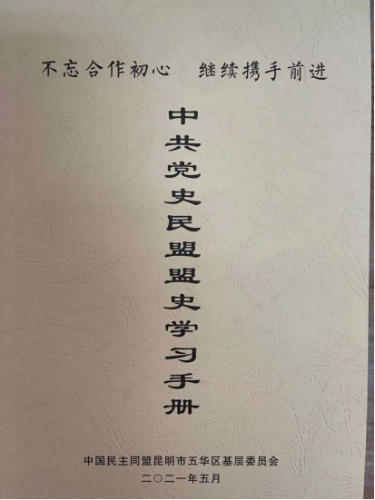 不忘合作初心 继续携手前进
中共党史民盟盟史学习手册
中国民主同盟昆明市五华区基层委员会
二〇二一年五月